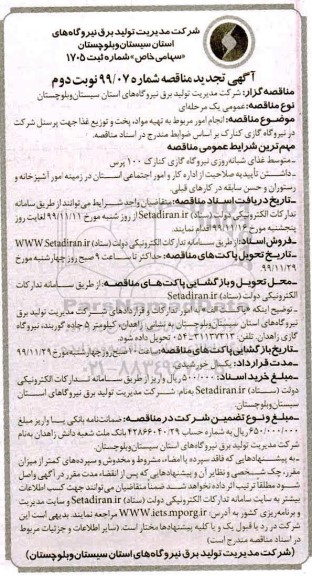 شرکت مدیریت تولید برق نیروگاه‌های
استان سیستان و بلوچستان
«سهامی خاص» شماره ثبت ۱۷۰۵
آگهی تجدید مناقصه شماره ۹۹/۰۷ نوبت دوم
مناقصه گزار: شرکت مدیریت تولید برق نیروگاه‌های استان سیستان و بلوچستان
نوع مناقصه: عمومی یک مرحله‌ای
موضوع مناقصه: انجام امور مربوط به تهیه مواد، پخت و توزیع غذا جهت پرسنل شرکت
در نیروگاه گازی کنارک بر اساس ضوابط مندرج در اسناد مناقصه.
مهم ترین شرایط عمومی مناقصه
ـ متوسط غذای شبانه‌روزی نیروگاه گازی کنارک ۱۰۰ پرس
ـ داشتن تأییدیه صلاحیت از اداره کار و امور اجتماعی استان در زمینه امور آشپزخانه و
رستوران و حسن سابقه در کارهای قبلی.
ـ تاریخ دریافت اسناد مناقصه: متقاضیان واجد شرایط می توانند از طریق سامانه
تدارکات الکترونیکی دولت (ستاد) Setadiran.ir از روز شنبه مورخ ۹۹/۱۱/۱۱ لغایت روز
پنجشنبه مورخ ۹۹/۱۱/۱۶ اقدام نمایند.
ـ فروش اسناد: از طریق سامانه تدارکات الکترونیکی دولت (ستاد) WWW.Setadiran.ir
ـ تاریخ تحویل پاکت های مناقصه: حداکثر تا ساعت ۹ صبح روز چهارشنبه مورخ
۹۹/۱۱/۲۹
ـ محل تحویل و بازگشایی پاکت های مناقصه: از طریق سامانه تدارکات
الکترونیکی دولت (ستاد) Setadiran.ir
ـ توضیح اینکه «پاکت الف» به دفتر تدارکات و قراردادهای شرکت مدیریت تولید برق
نیروگاه‌های استان سیستان و بلوچستان به نشانی: زاهدان، کیلومتر ۵ جاده گوربند، نیروگاه
گازی زاهدان، تلفن: ۳۱۱۳۷۳۱۳-۰۵۴ تحویل داده شود.
ـ تاریخ بازگشایی پاکت های مناقصه: ساعت ۱۰ صبح روز چهارشنبه مورخ ۹۹/۱۱/۲۹
ـ مدت قرارداد: یکسال خورشیدی
ـ مبلغ خرید اسناد: ۵۰۰/۰۰۰ ریال واریز از طریق سامانه تدارکات الکترونیکی
دولت (ستاد) Setadiran.ir به نام: شرکت مدیریت تولید برق نیروگاه‌های استان
سیستان و بلوچستان
ـ مبلغ و نوع تضمین شرکت در مناقصه: ضمانت‌نامه بانکی یا واریز مبلغ
۶۵۰/۰۰۰/۰۰۰ ریال به شماره حساب ۴۲۸۶۶۰۴۰۲۹ بانک ملت شعبه دانش زاهدان به نام
شرکت مدیریت تولید برق نیروگاه‌های استان سیستان و بلوچستان.
ـ به پیشنهادهایی که فاقد سپرده یا امضاء، مشروط و مخدوش و سپرده‌های کمتر از میزان
مقرر، چک شخصی و نظایر آن و پیشنهادهایی که پس از انقضاء مدت مقرر در آگهی واصل
شود مطلقا ترتیب اثر داده نخواهد شد. ضمنا متقاضیان می توانند جهت کسب اطلاعات
بیشتر به سایت سامانه تدارکات الکترونیکی دولت (ستاد) Setadiran.ir و سایت مدیریت
و برنامه‌ریزی کشور به آدرس: WWW.iets.mporg.ir مراجعه نمایند. بدیهی است این
شرکت در رد یا قبول یک و یا کلیه پیشنهادها مختار است (سایر اطلاعات و جزئیات مربوط
در اسناد مناقصه مندرج است)
(شرکت مدیریت تولید برق نیروگاه‌های استان سیستان و بلوچستان)